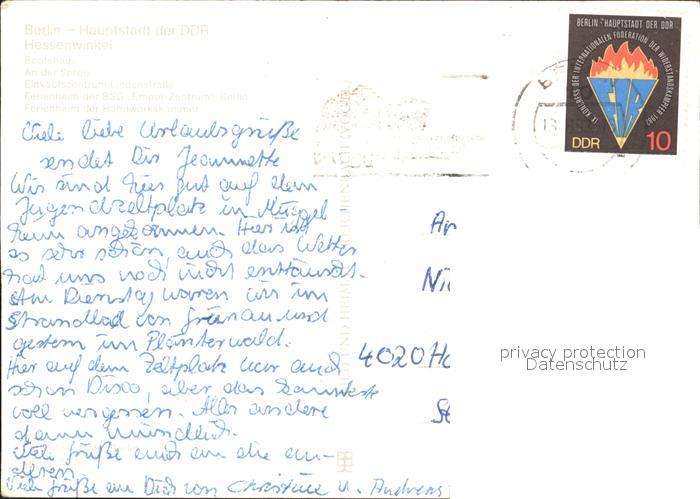 Berlin – Hauptstadt der DDR
Hessenwinkel
Bootshaus
An der Spree
Einkaufszentrum Lindenstraße
Ferienheim der BSG „Empor Zentrum“, Berlin
Ferienheim der Handwerkskammer
BERLIN - HAUPTSTADT DER DDR
IX. KONGRESS DER INTERNATIONALEN FÖDERATION DER WIDERSTANDSKÄMPFER 1982
FIR
DDR 10
1982
Viele liebe Urlaubsgrüße
sendet Dir Jeannette
Wir sind hier gut auf dem
Jugendzeltplatz in Müggel
heim angekommen. Hier ist
es sehr schön, auch das Wetter
hat uns noch nicht enttäuscht.
Am Dienstag waren wir im
Strandbad von Grünau und
gestern im Plänterwald.
Hier auf dem Zeltplatz war auch
schon Disco, aber das kannste
voll vergessen. Alles andere
dann mündlich.
Viele Grüße auch an die an-
deren.
Viele Grüße an Dich von Christine u. Andreas
An
Ni
4020 Ha
St
privacy protection
Datenschutz